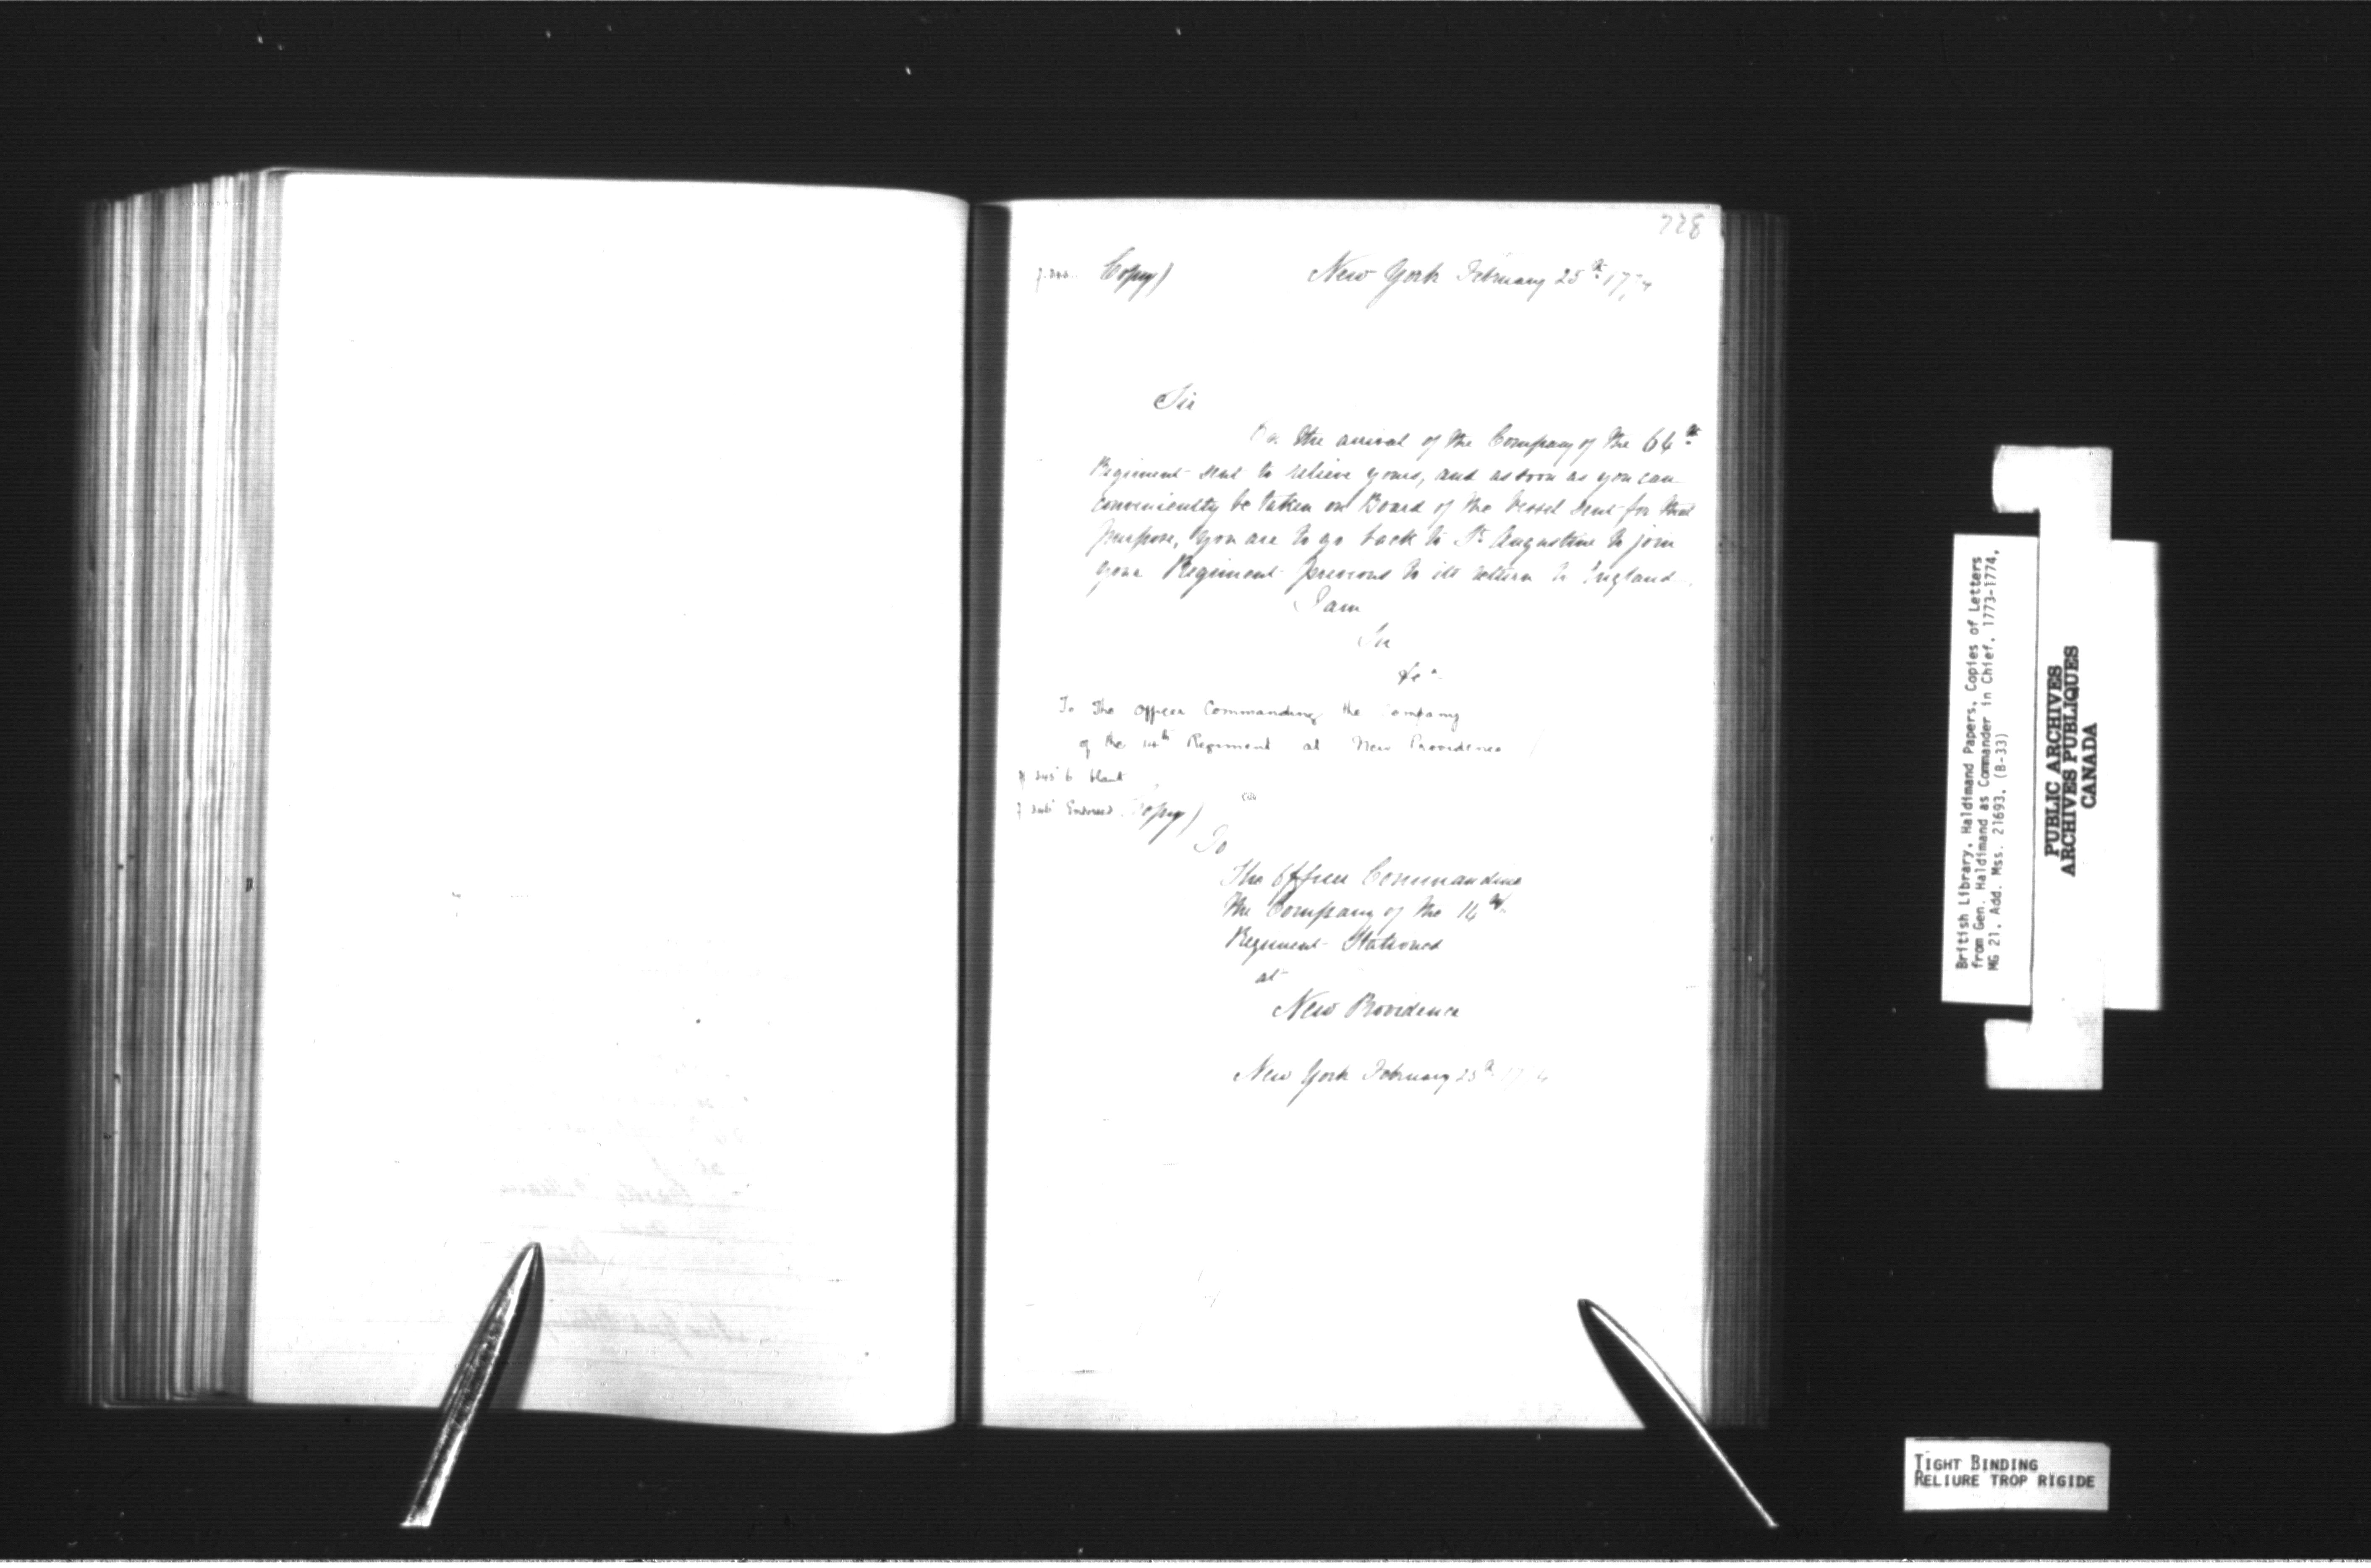 728
Copy) New York February 25th 1774
Sir
On the arrival of the Company of the 64th
Regiment sent to relieve yours, and as soon as you can
conveniently be taken on Board of the Vessel sent for that
purpose, you are to go back to St. Augustine to join
your Regiment previous to its return to England.
I am
Sir
&ca
To The Officer Commanding the Company
of the 14th Regiment at New Providence
blank
Endorsed. Copy)
To
The Officer Commanding
the Company of the 14th
Regiment Stationed
at
New Providence
New York February 25th
British Library, Haldimand Papers, Copies of Letters
from Gen. Haldimand as Commander in Chief, 1773-1774,
MG 21, Add. Mss. 21693, (B-33)
PUBLIC ARCHIVES
ARCHIVES PUBLIQUES
CANADA
TIGHT BINDING
RELIURE TROP RIGIDE